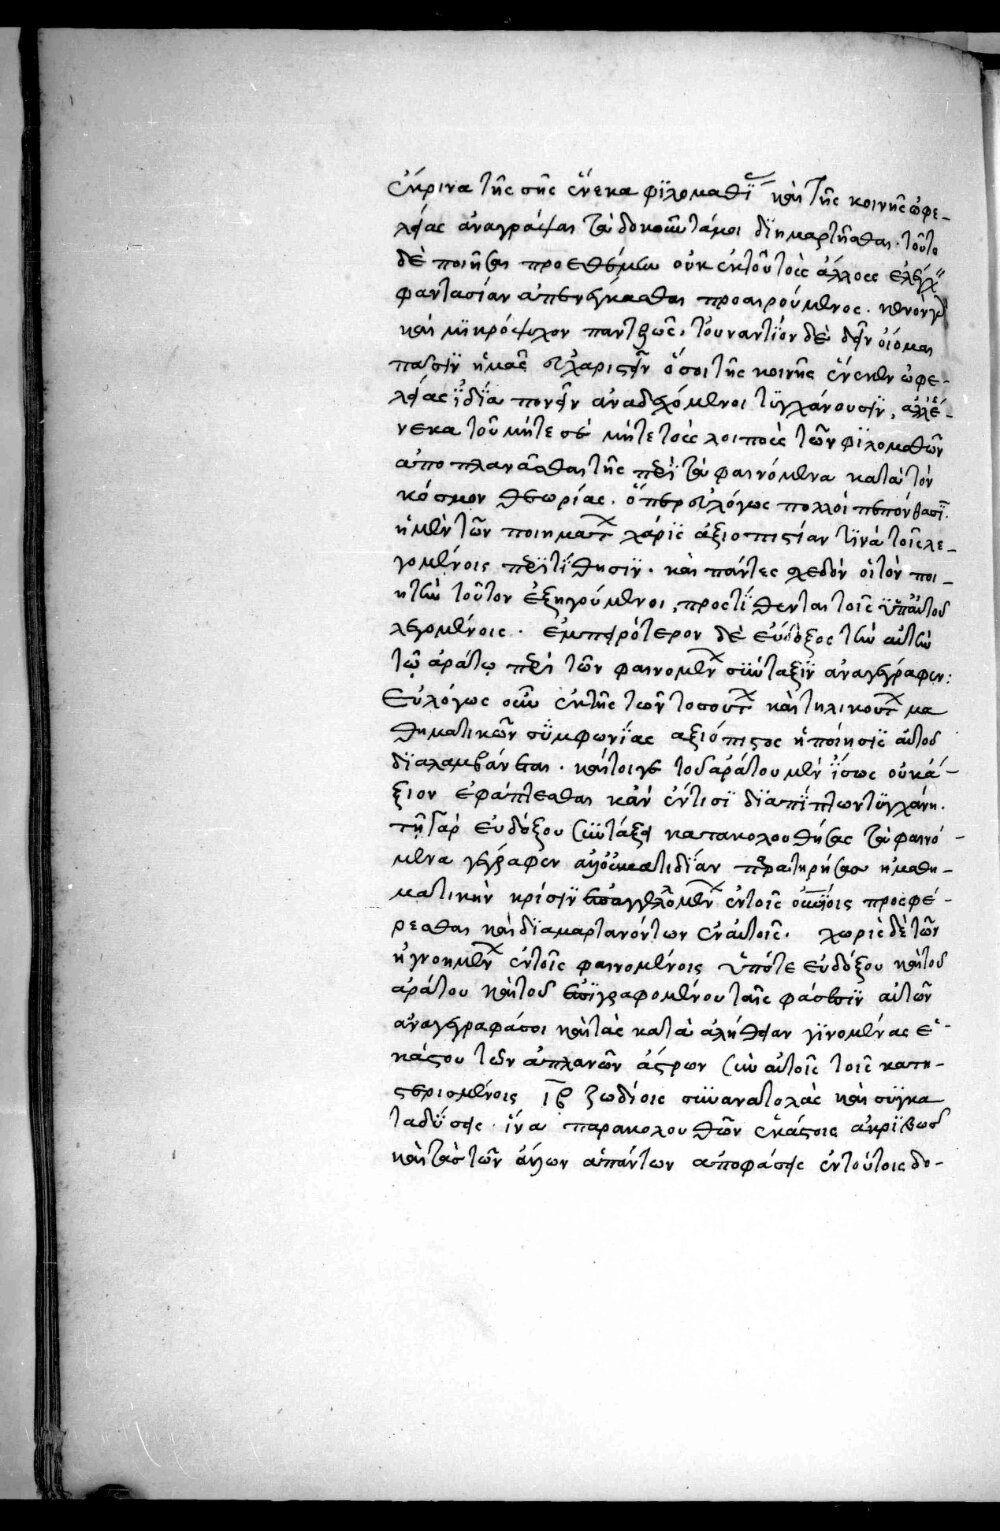 ἔκρινα τῆς σῆς ἕνεκα φιλομαθί καὶ τῆς κοινῆς ὠφε-
λείας ἀναγράψαι τὰ δοκοῦντά μοι διημαρτῆσθαι. τοῦτο
δὲ ποιῆσαι προεθέμην οὐκ ἐκ τοῦ τοὺς ἄλλους ἐλέγχ
φαντασίαν ἀπενέγκασθαι προαιρούμενος. κενὸν γὰρ
καὶ μικρόψυχον παντελῶς. τοὐναντίον δὲ δεῖν οἴομαι
πᾶσιν ἡμᾶς εὐχαριστεῖν ὅσοι τῆς κοινῆς ἕνεκεν ὠφε-
λείας ἰδία πονεῖν ἀναδεχόμενοι τυγχάνουσιν. ἀλλ' ἕ-
νεκα τοῦ μήτε σὲ μήτε τοὺς λοιποὺς τῶν φιλομαθῶν
ἀποπλανᾶσθαι τῆς περὶ τὰ φαινόμενα κατὰ τὸν
κόσμον θεωρίας. ὅπερ εὐλόγως πολλοὶ πεπόνθασι.
ἡ μὲν τῶν ποιημάτ χάρις ἀξιοπιστίαν τινὰ τοῖς λε-
γομένοις περιτίθησιν. καὶ πάντες σχεδὸν οἱ τὸν ποι-
ητὴν τοῦτον ἐξηγούμενοι, προστίθενται τοῖς ὑπ' αὐτοῦ
λεγομένοις. ἐμπειρότερον δὲ εὔδοξος τὴν αὐτὴν
τῷ ἀράτῳ περὶ τῶν φαινομέν σύνταξιν ἀναγέγραφεν:
Εὐλόγως οὖν ἐκ τῆς τῶν τοσούτ καὶ τηλικούτ μα
θηματικῶν συμφωνίας ἀξιόπιστος ἡ ποίησις αὐτοῦ
διαλαμβάνεται. καίτοιγε τοῦ ἀράτου μὲν ἴσως οὐκ ἄ-
ξιον ἐφάπτεσθαι κἂν ἔν τισι διαπίπτων τυγχάνη.
τῇ γὰρ εὐδόξου συντάξει κατακολουθήσας τὰ φαινό-
μενα γέγραφεν ἀλλ' οὐ κατιδίαν παρατηρήσας ἢ μαθη-
ματικὴν κρίσιν ἐπαγγελλομέν ἐν τοῖς οὐνίοις προσφέ-
ρεσθαι καὶ διαμαρτανόντων ἐν αὐτοῖς. χωρὶς δὲ τῶν
ἠγνοημέν ἐν τοῖς φαινομένοις ὑπό τε εὐδόξου καὶ τοῦ
ἀράτου καὶ τοῦ ἐπιγραφομένου ταῖς φάσεσιν αὐτῶν
ἀναγεγραφάσοι καὶ τὰς κατὰ ἀλήθειαν γινομένας ἑ-
κάστου τῶν ἀπλανῶν ἄστρων σὺν αὐτοῖς τοῖς κατη-
στερισμένοις ιβ ζωδίοις συνανατολὰς καὶ συγκα
ταδύσεις. ἵνα παρακολουθῶν ἑκάστοις ἀκριβῶς
καὶ τὰς τῶν ἄλλων ἁπάντων ἀποφάσεις ἐν τούτοις δο-